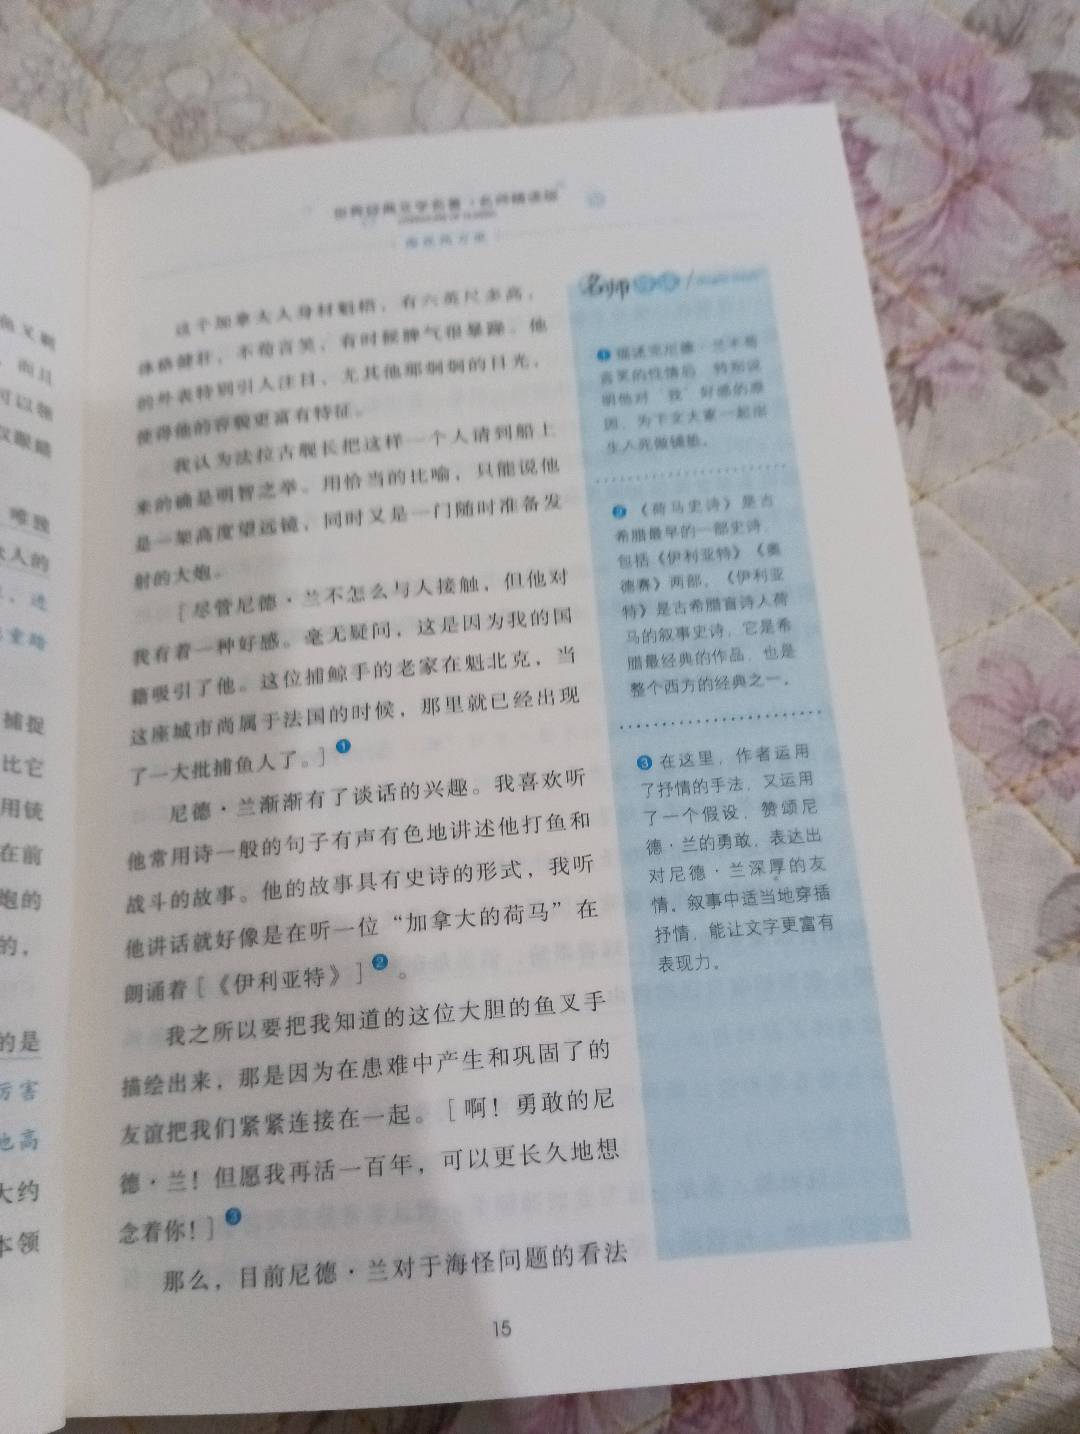 世界经典文学名著·名师精读版
海底两万里
这个加拿大人身材魁梧，有六英尺多高，
体格健壮，不苟言笑，有时候脾气很暴躁。他
的外表特别引人注目，尤其他那炯炯的目光，
使得他的容貌更富有特征。
我认为法拉古舰长把这样一个人请到船上
来的确是明智之举。用恰当的比喻，只能说他
是一架高度望远镜，同时又是一门随时准备发
射的大炮。
[尽管尼德·兰不怎么与人接触，但他对
我有着一种好感。毫无疑问，这是因为我的国
籍吸引了他。这位捕鲸手的老家在魁北克，当
这座城市尚属于法国的时候，那里就已经出现
了一大批捕鱼人了。]①
尼德·兰渐渐有了谈话的兴趣。我喜欢听
他常用诗一般的句子有声有色地讲述他打鱼和
战斗的故事。他的故事具有史诗的形式，我听
他讲话就好像是在听一位“加拿大的荷马”在
朗诵着[《伊利亚特》]②。
我之所以要把我知道的这位大胆的鱼叉手
描绘出来，那是因为在患难中产生和巩固了的
友谊把我们紧紧连接在一起。[啊！勇敢的尼
德·兰！但愿我再活一百年，可以更长久地想
念着你！]③
那么，目前尼德·兰对于海怪问题的看法
15
名师
①描述完尼德·兰不苟
言笑的性情后，特别说
明他对“我”好感的原
因，为下文大家一起出
生入死做铺垫。
②《荷马史诗》是古
希腊最早的一部史诗，
包括《伊利亚特》《奥
德赛》两部。《伊利亚
特》是古希腊盲诗人荷
马的叙事史诗，它是希
腊最经典的作品，也是
整个西方的经典之一。
③在这里，作者运用
了抒情的手法，又运用
了一个假设，赞颂尼
德·兰的勇敢，表达出
对尼德·兰深厚的友
情。叙事中适当地穿插
抒情，能让文字更富有
表现力。
而且
可以领
唯独
人的
，进
捕捉
比它
用铳
在前
炮的
的，
的是
厉害
地高
大约
本领